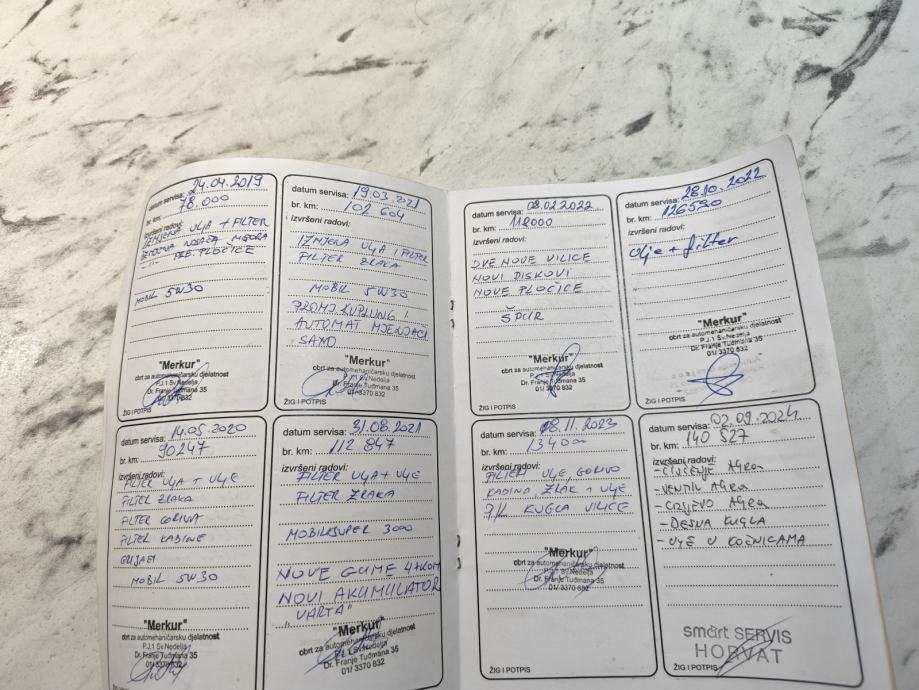 datum servisa: 24.04.2019
br. km: 78.000
izvršeni radovi:
IZMJENA ULJA + FILTER
IZMJENA NOSAČA MOTORA
PRE. PLOČICE
MOBIL 5W30
"Merkur"
obrt za automehaničarsku djelatnost
P.J.1 Sv.Nedelja
Dr. Franje Tuđmana 35
01/ 3370 832
ŽIG I POTPIS
datum servisa: 14.05.2020
br. km: 90247
izvršeni radovi:
FILTER ULJA + ULJE
FILTER ZRAKA
FILTER GORIVA
FILTER KABINE
MOBIL 5W30
"Merkur"
obrt za automehaničarsku djelatnost
P.J.1 Sv.Nedelja
Dr. Franje Tuđmana 35
01/ 3370 832
datum servisa: 19.03.2021
br. km: 102 604
izvršeni radovi:
IZMJENA ULJA I FILTER
FILTER ZRAKA
MOBIL 5W30
KUPLUNG I
AUTOMAT MJENJAČ
"Merkur"
obrt za automehaničarsku djelatnost
P.J.1 Sv.Nedelja
Dr. Franje Tuđmana 35
01/ 3370 832
ŽIG I POTPIS
datum servisa: 31.08.2021
br. km: 112 847
izvršeni radovi:
FILTER ULJA + ULJE
FILTER ZRAKA
MOBILSUPER 3000
NOVE GUME 4+KOM
NOVI AKUMULATOR
VARTA"
"Merkur"
obrt za automehaničarsku djelatnost
P.J.1 Sv.Nedelja
Dr. Franje Tuđmana 35
01/ 3370 832
ŽIG I POTPIS
datum servisa: 08.02.2022
br. km:
izvršeni radovi:
DVE NOVE VILICE
NOVI DISKOVI
NOVE PLOČICE
ŠPUR
"Merkur"
obrt za automehaničarsku djelatnost
P.J.1 Sv.Nedelja
Dr. Franje Tuđmana 35
01/ 3370 832
ŽIG I POTPIS
datum servisa: 08.11.2023
br. km: 134000
izvršeni radovi:
FILTERI ULJE GORIVO
KABINA ZRAK + ULJE
KUGLA VILICE
"Merkur"
obrt za automehaničarsku djelatnost
P.J.1 Sv.Nedelja
Dr. Franje Tuđmana 35
01/ 3370 832
ŽIG I POTPIS
datum servisa: 28.10.2022
br. km: 126590
izvršeni radovi:
Ulje + filter
"Merkur"
obrt za automehaničarsku djelatnost
P.J.1 Sv.Nedelja
Dr. Franje Tuđmana 35
01/ 3370 832
ŽIG I POTPIS
datum servisa: 02.09.2024
br. km: 140 527
izvršeni radovi:
- ČIŠĆENJE AGRa
- VENTIL AGRa
- CRIJEVO AGRa
- DESNA KUGLA
- ULJE U KOČNICAMA
smart SERVIS
HORVAT
ŽIG I POTPIS